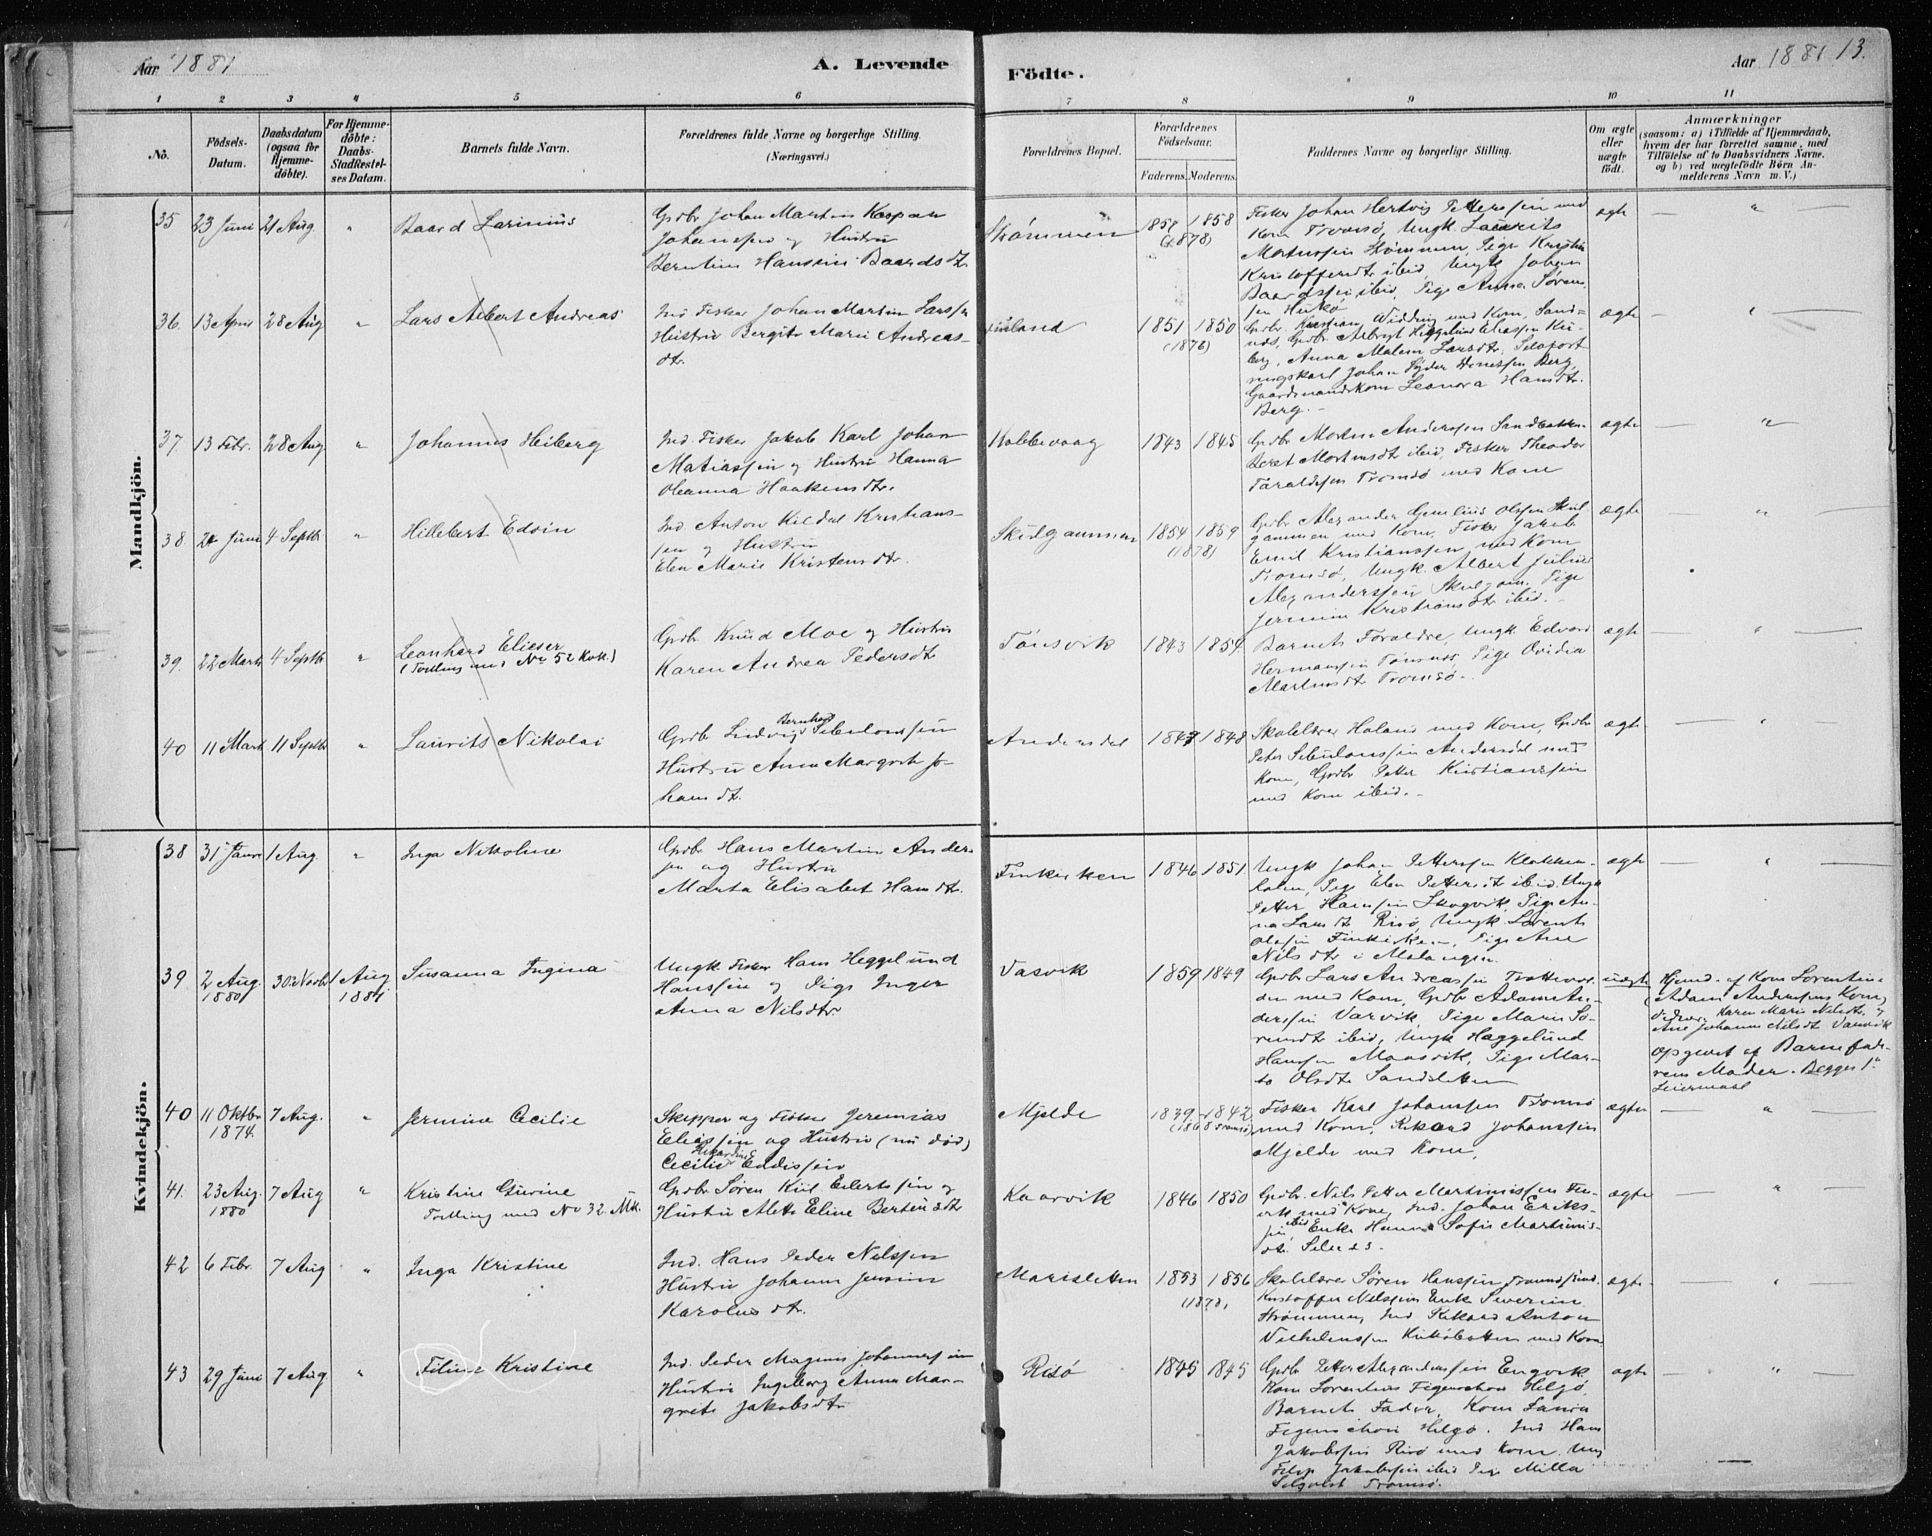 Aar 1881
A. Levende
Födte.
Aar 1881 13.
1 2 3 4 5 6 7 8 9 10 11
No.
Födsels-
Datum.
Daabsdatum
(ogsaa for
Hjemme-
döbte).
For Hjemme-
döbte:
Daabs-
Stadfæstel-
ses Datum.
Barnets fulde Navn.
Forældrenes fulde Navne og borgerlige Stilling.
(Næringsvei.)
Forældrenes Bopæl.
Forældrenes
Födselsaar.
Faderens. Moderens.
Faddernes Navne og borgerlige Stilling.
Om ægte
eller
uægte
födt.
Anmærkninger
(saasom: a) i Tilfælde af Hjemmedaab,
hvem der har forrettet samme, med
Tilföielse af to Daabsvidners Navne,
og b) ved uægtefödte Börn An-
melderens Navn m. V.)
Mandkjön.
35 23 Juni 21 Aug. "
Baard Larinius
Gdbr Johan Martin Kaspar
Johanssen og Hustru
Berntine Hansine Baardsdtr
Strømmen
1857 1858
(1878)
Fisker Johan Hertvig Pettersen med
Kone Tromsø, Ungk Laurits
Mortensen Strømmen, Pige Kristine
Kristoffersdtr ibid, Ungk Johan
Baardssen ibid, Pige Anna Søren-
ægte
36. 13 April 28 Aug "
Lars Albert Andreas
Ind Fisker Johan Martin Larssen
Hustru Bergite Marie Andreas-
dtr.
1851 1850
(1876)
Gdbr. Kristian Widding med Kone, Sand-
Anna Malene Larsdtr.
Leonora Hansdtr.
Berg.
ægte
37 13 Febr. 28 Aug "
Johannes Heiberg
Ind. Fisker Jakob Karl Johan
Matiassen og Hustru Hanna
Oleanna Haakensdtr.
Kobbevaag
1843 1845
Gdbr Morten Anderssen Sandbakken
Beret Mortensdtr ibid, Fisker Theodor
Taraldsen Tromsø med Kone
ægte
38. 24 Juni 4 Septbr "
Hillebert Edvin
Ind. Anton Kildal Kristians-
sen og Hustru
Elen Marie Kristensdtr.
Skulgammen
1854 1859
(1878)
Gdbr Alexander Cornelius Olssen Skul
gammen med Kone, Fisker Jakob
Emil Kristianssen med Kone
Tromsø, Ungk. Albert Julius
Alexanderssen Skulgam. Pige
Jermine Kristiansdtr ibid.
ægte
39. 22 Marts 4 Septbr "
Leonhard Elieser
(Tvilling med No 52 Kvk.)
Gdbr. Knud Moe og Hustru
Karen Andrea Pedersdtr
Tønsvik
1843 1854.
Barnets Forældre, Ungk Edvard
Hermanssen Tønsnes, Pige Ovidia
Martinusdtr Tromsø.
ægte
40 11 Marts 11 Septbr "
Laurits Nikolai
Bernhard
Gdbr Ludvig Sebulonssen
Hustru Anne Margrete Jo-
hansdtr.
Andersdal
1847 1848
Skolelærer Høland med Kone, Gdbr
Peter Sebulonssen Andersdal med
Kone, Gdbr Petter Kristianssen
med Kone ibid.
ægte
Kvindekjön.
38 31 Janr 1 Aug. "
Inga Nikoline
Gdbr Hans Martin Ander-
sen og Hustru
Marta Elisabet Hansdtr.
Finkirken
1846 1851.
Ungk Johan Petterssen Klokken-
holm, Pige Elen Pettersdtr ibid, Ungk
Petter Hanssen Skogvik, Pige An-
na Larsdtr Risø, Ungk Sørents
Olssen Finkirken, Pige Ane
Nilsdtr i Malangen.
ægte
39 2 Aug. 30 Novbr 1 Aug
1880 1881
Susanna Ingina
Ungk Fisker Hans Heggelund
Hanssen og Pige Inger
Anna Nilsdtr.
Vasvik
1859 1849
Gdbr Lars Andreassen
den med Kone, Gdbr Adam An-
derssen Vasvik, Pige Marie Sø-
rensdtr ibid, Ungk Heggelund
Hanssen Maasvik, Pige Mar-
ta Olsdtr Sandsletten
uægte
Hjemd. af Kone Lorentine
(Adam Anderssens Kone)
Vidner. Karen Marie Nilsdtr, og
Ane Johanne Nilsdt Vasvik
Opgivet af Barnefade-
rens Moder. Begges 1.
Leiermaal
40 11 Oktbr 7 Aug. "
1874.
Jermine Cecilie
Skipper og Fisker Jeremias
Eliassen og Hustru (nu død)
Cecilie Eddissen
Mjelde
1839 1842
(1868 Tromsø)
Fisker Karl Johanssen Tromsø
med Kone, Rikard Johanssen
Mjelde med Kone.
ægte
41. 23 Aug. 7 Aug "
1880
Kristine Gurine
Tvilling med No 32. Mk.
Gdbr. Søren Kiil Eilertssen og
Hustru Mette Eline Bertensdtr
Kaarvik
1846 1850
Gdbr. Nils Petter Martinussen
med Kone, Ind. Johan Eriks-
sen ibid, Enke Hanna Sofie Martinus-
dtr.
ægte
42 6 Febr. 7 Aug "
Inga Kristine
Ind. Hans Peder Nilssen
Hustru Johanne Jensine
Karolusdtr.
Marisletten
1853 1856
(1878)
Skolelærer Søren Hanssen Tromsøsund.
Kristoffer Nilssen Enke Severine
Strømmen, Ind Rikard Anton
Vilhelmssen med Kone
ægte
43 29 Juni 7 Aug "
Filine Kristine
Ind. Peder Magnus Johannessen
Hustru Ingeborg Anna Mar-
grete Jakobsdtr.
Risø
1845 1845
Gdbr Petter Alexanderssen Engvik
Kone Lorentine Figenschou Helgø,
Barnets Fader, Kone Laura
Figenschou Helgø. Ind Hans
Jakobssen Risø med Kone. Ung
Filip Jakobssen ibid Pige Milla
Selqvist Tromsø.
ægte